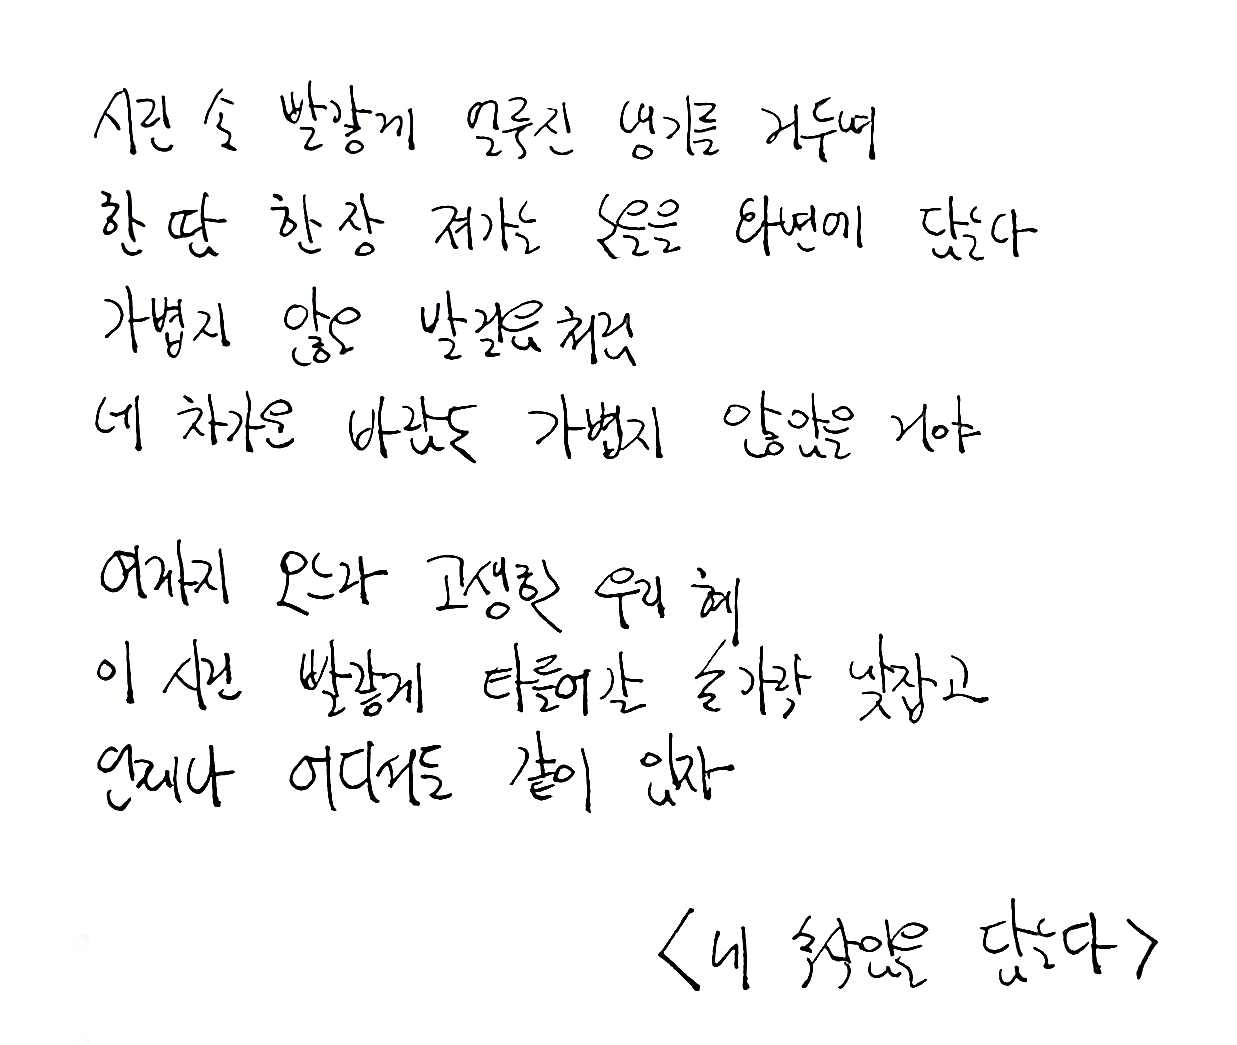 시린 손 빨갛게 얼룩진 냉기를 거두며
한 땀 한 장 져가는 노을을 화면에 담는다
가볍지 않은 발걸음처럼
네 차가운 바람도 가볍지 않았을 거야
여까지 오느라 고생한 우리 혜
이 시린 빨갛게 타들어갈 손가락 맞잡고
언제나 어디서든 같이 있자
<네 속삭임을 담는다>